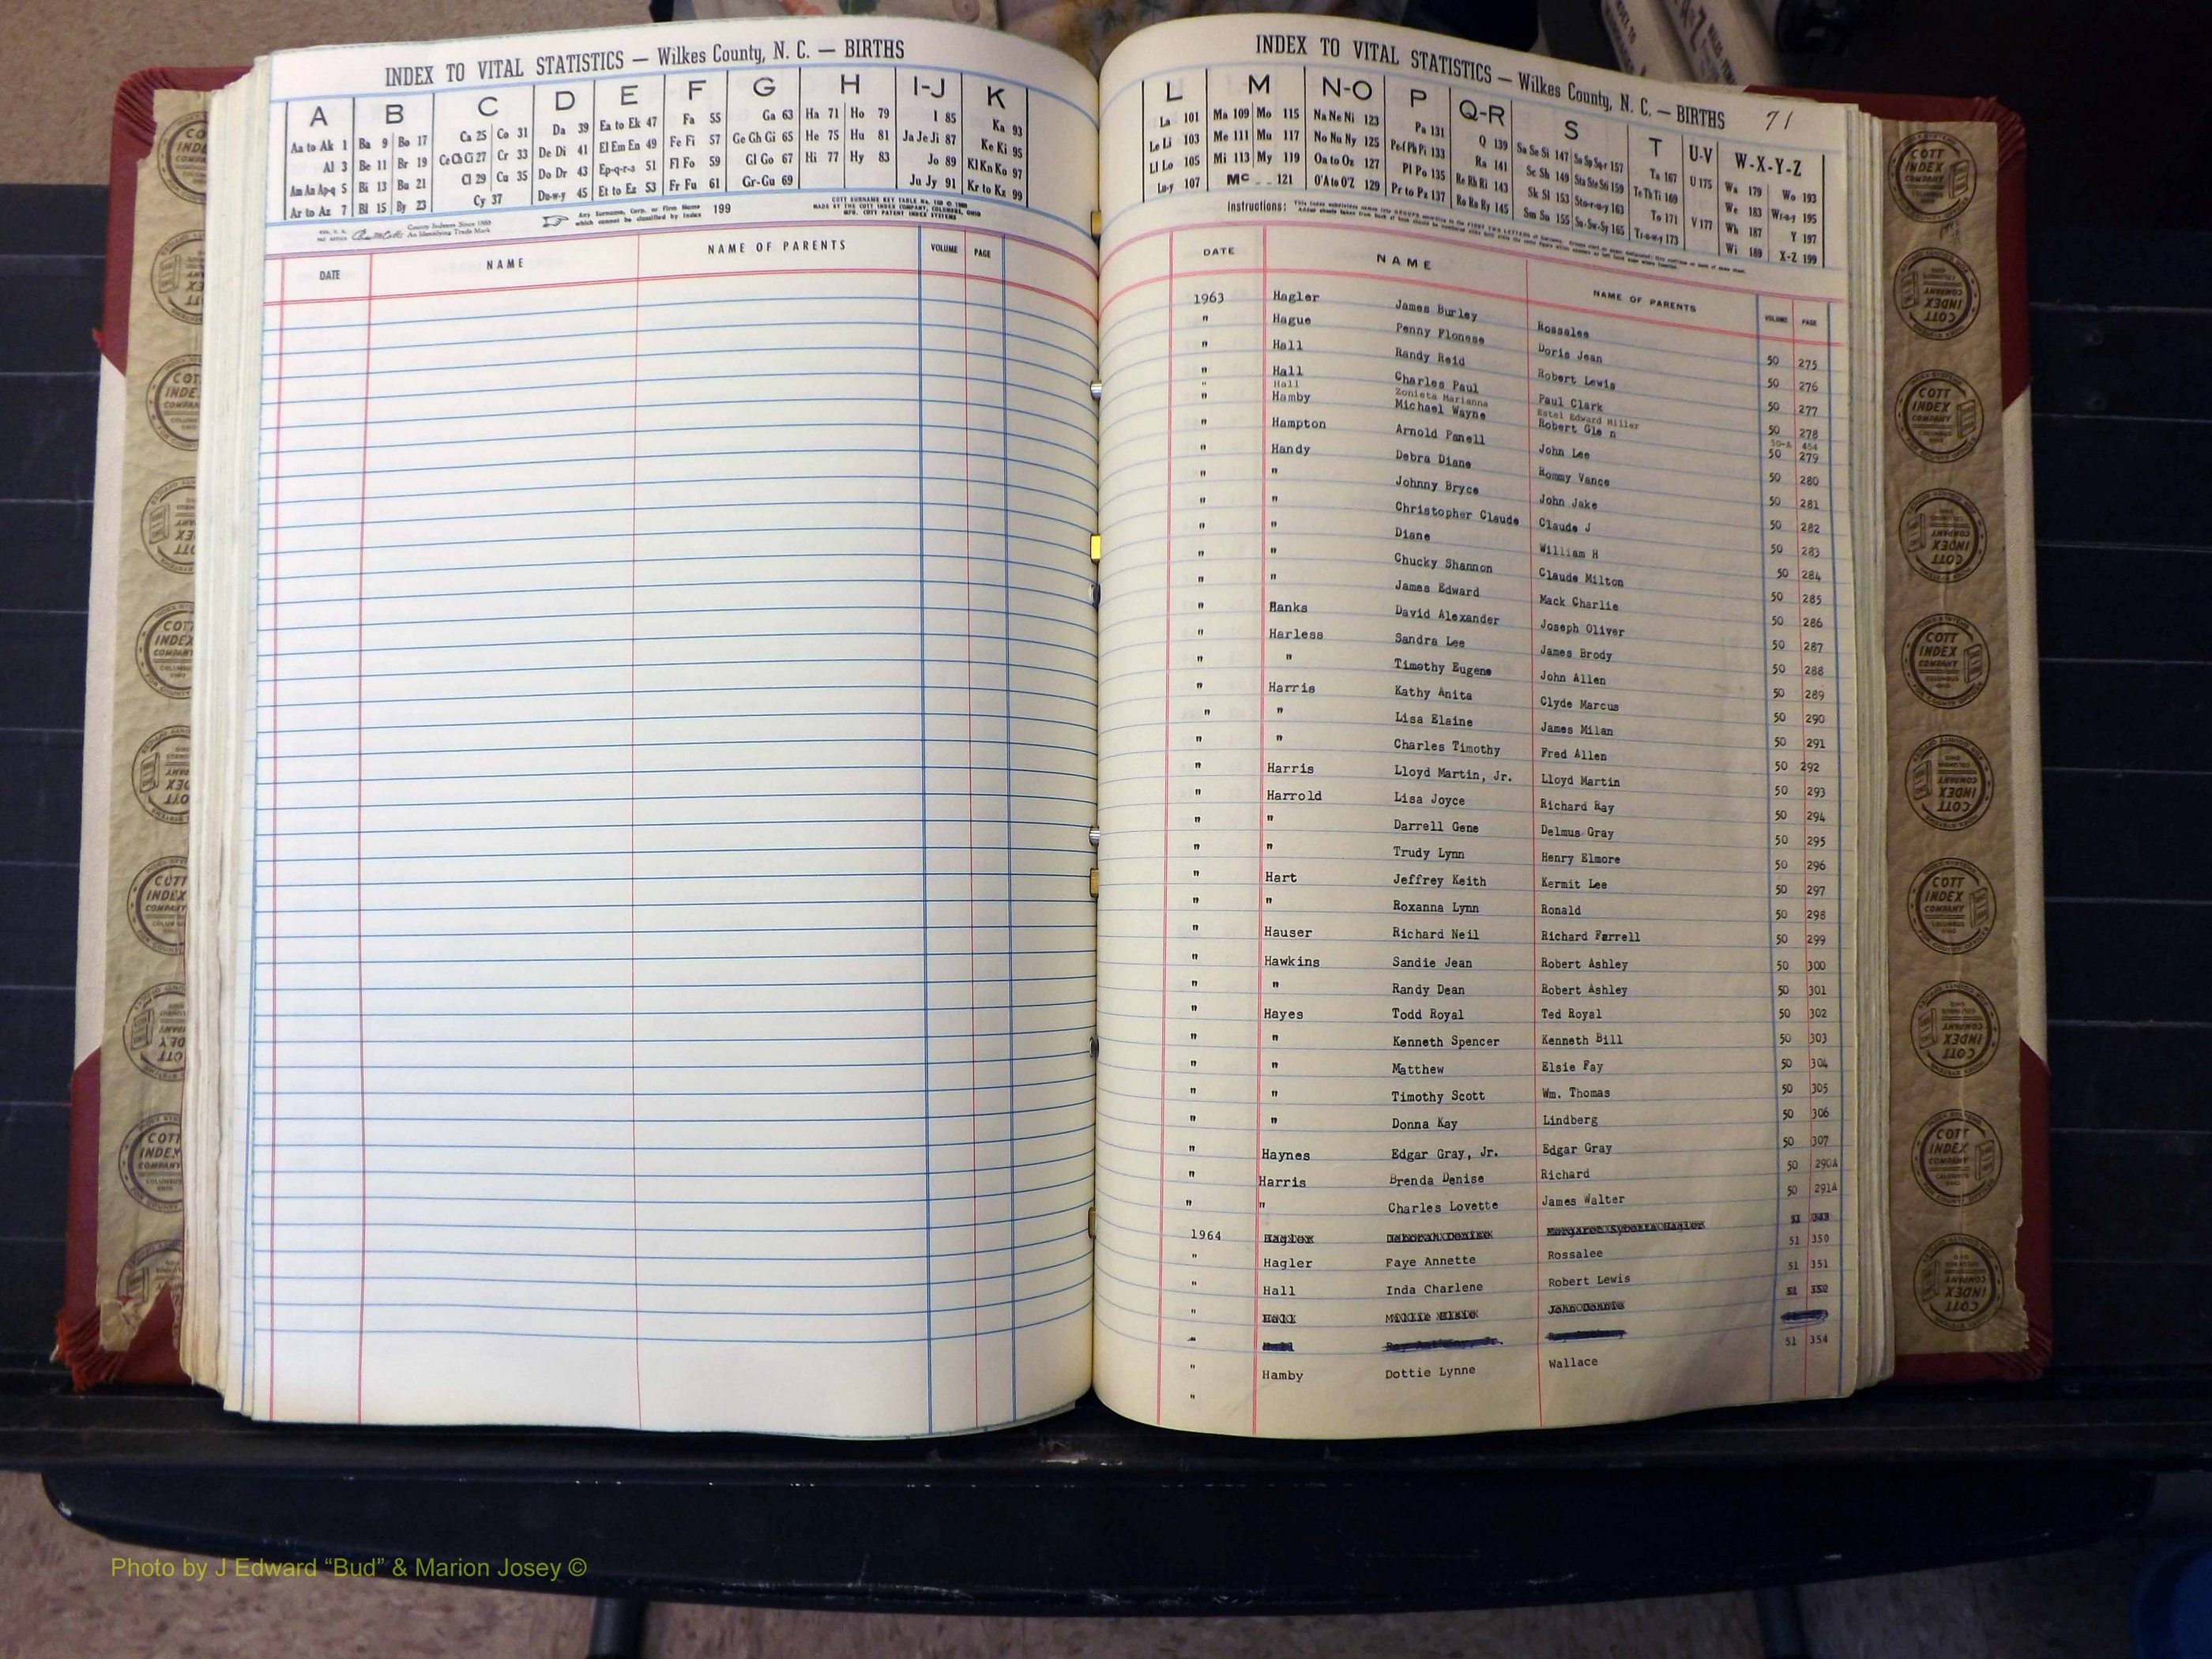 INDEX TO VITAL STATISTICS — Wilkes County, N. C. — BIRTHS
A B C D E F G H I-J K
Aa to Ak 1 Ba 9 Bo 17 Ca 25 Co 31 Da 39 Ea to Ek 47 Fa 55 Ga 63 Ha 71 Ho 79 I 85 Ka 93
Al 3 Be 11 Br 19 Ce Ch Ci 27 Cr 33 De Di 41 El Em En 49 Fe Fi 57 Ge Gh Gi 65 He 75 Hu 81 Ja Je Ji 87 Ke Ki 95
Am An Ap-q 5 Bi 13 Bu 21 Cl 29 Cu 35 Do Dr 43 Ep-q-r-s 51 Fl Fo 59 Gl Go 67 Hi 77 Hy 83 Jo 89 Kl Kn Ko 97
Ar to Az 7 Bl 15 By 23 Cy 37 Du-w-y 45 Et to Ez 53 Fr Fu 61 Gr-Gu 69 Ju Jy 91 Kr to Kz 99
County Indexes Since 1888
An Identifying Trade Mark
Any Surname, Corp. or Firm Name
which cannot be classified by Index 199
DATE NAME NAME OF PARENTS VOLUME PAGE
INDEX TO VITAL STATISTICS — Wilkes County, N. C. — BIRTHS 71
L M N-O P Q-R S T U-V W-X-Y-Z
La 101 Ma 109 Mo 115 Na Ne Ni 123 Pa 131 Q 139 Sa Se Si 147 So Sp Sq-r 157 Ta 167 U 175 Wa 179 Wo 193
Le Li 103 Me 111 Mu 117 No Nu Ny 125 Pe-f Ph Pi 133 Ra 141 Sc Sh 149 Sta Ste Sti 159 Te Th Ti 169 We 183 Wr-u-y 195
Ll Lo 105 Mi 113 My 119 Oa to Oz 127 Pl Po 135 Re Rh Ri 143 Sk Sl 153 Sto-r-u-y 163 To 171 V 177 Wh 187 Y 197
Lu-y 107 Mc 121 O'A to O'Z 129 Pr to Pz 137 Ro Ru Ry 145 Sm Sn 155 Su-Sw-Sy 165 Tr-u-w-y 173 Wi 189 X-Z 199
Instructions:
DATE NAME NAME OF PARENTS VOLUME PAGE
1963 Hagler James Burley Rossalee 50 275
" Hague Penny Flonese Doris Jean 50 276
" Hall Randy Reid Robert Lewis 50 277
" Hall Charles Paul Paul Clark 50 278
" Hall Zonieta Marianna Estel Edward Miller 50-A 454
" Hamby Michael Wayne Robert Gle n 50 279
" Hampton Arnold Panell John Lee 50 280
" Handy Debra Diane Rommy Vance 50 281
" " Johnny Bryce John Jake 50 282
" " Christopher Claude Claude J 50 283
" " Diane William H 50 284
" " Chucky Shannon Claude Milton 50 285
" " James Edward Mack Charlie 50 286
" Hanks David Alexander Joseph Oliver 50 287
" Harless Sandra Lee James Brody 50 288
" " Timothy Eugene John Allen 50 289
" Harris Kathy Anita Clyde Marcus 50 290
" " Lisa Elaine James Milan 50 291
" " Charles Timothy Fred Allen 50 292
" Harris Lloyd Martin, Jr. Lloyd Martin 50 293
" Harrold Lisa Joyce Richard Ray 50 294
" " Darrell Gene Delmus Gray 50 295
" " Trudy Lynn Henry Elmore 50 296
" Hart Jeffrey Keith Kermit Lee 50 297
" " Roxanna Lynn Ronald 50 298
" Hauser Richard Neil Richard Farrell 50 299
" Hawkins Sandie Jean Robert Ashley 50 300
" " Randy Dean Robert Ashley 50 301
" Hayes Todd Royal Ted Royal 50 302
" " Kenneth Spencer Kenneth Bill 50 303
" " Matthew Elsie Fay 50 304
" " Timothy Scott Wm. Thomas 50 305
" " Donna Kay Lindberg 50 306
" Haynes Edgar Gray, Jr. Edgar Gray 50 307
" Harris Brenda Denise Richard 50 290A
" " Charles Lovette James Walter 50 291A
1964
" Hagler Faye Annette Rossalee 51 350
" Hall Inda Charlene Robert Lewis 51 351
"
"
" Hamby Dottie Lynne Wallace 51 354
"
COTT INDEX COMPANY
Photo by J Edward “Bud” & Marion Josey ©